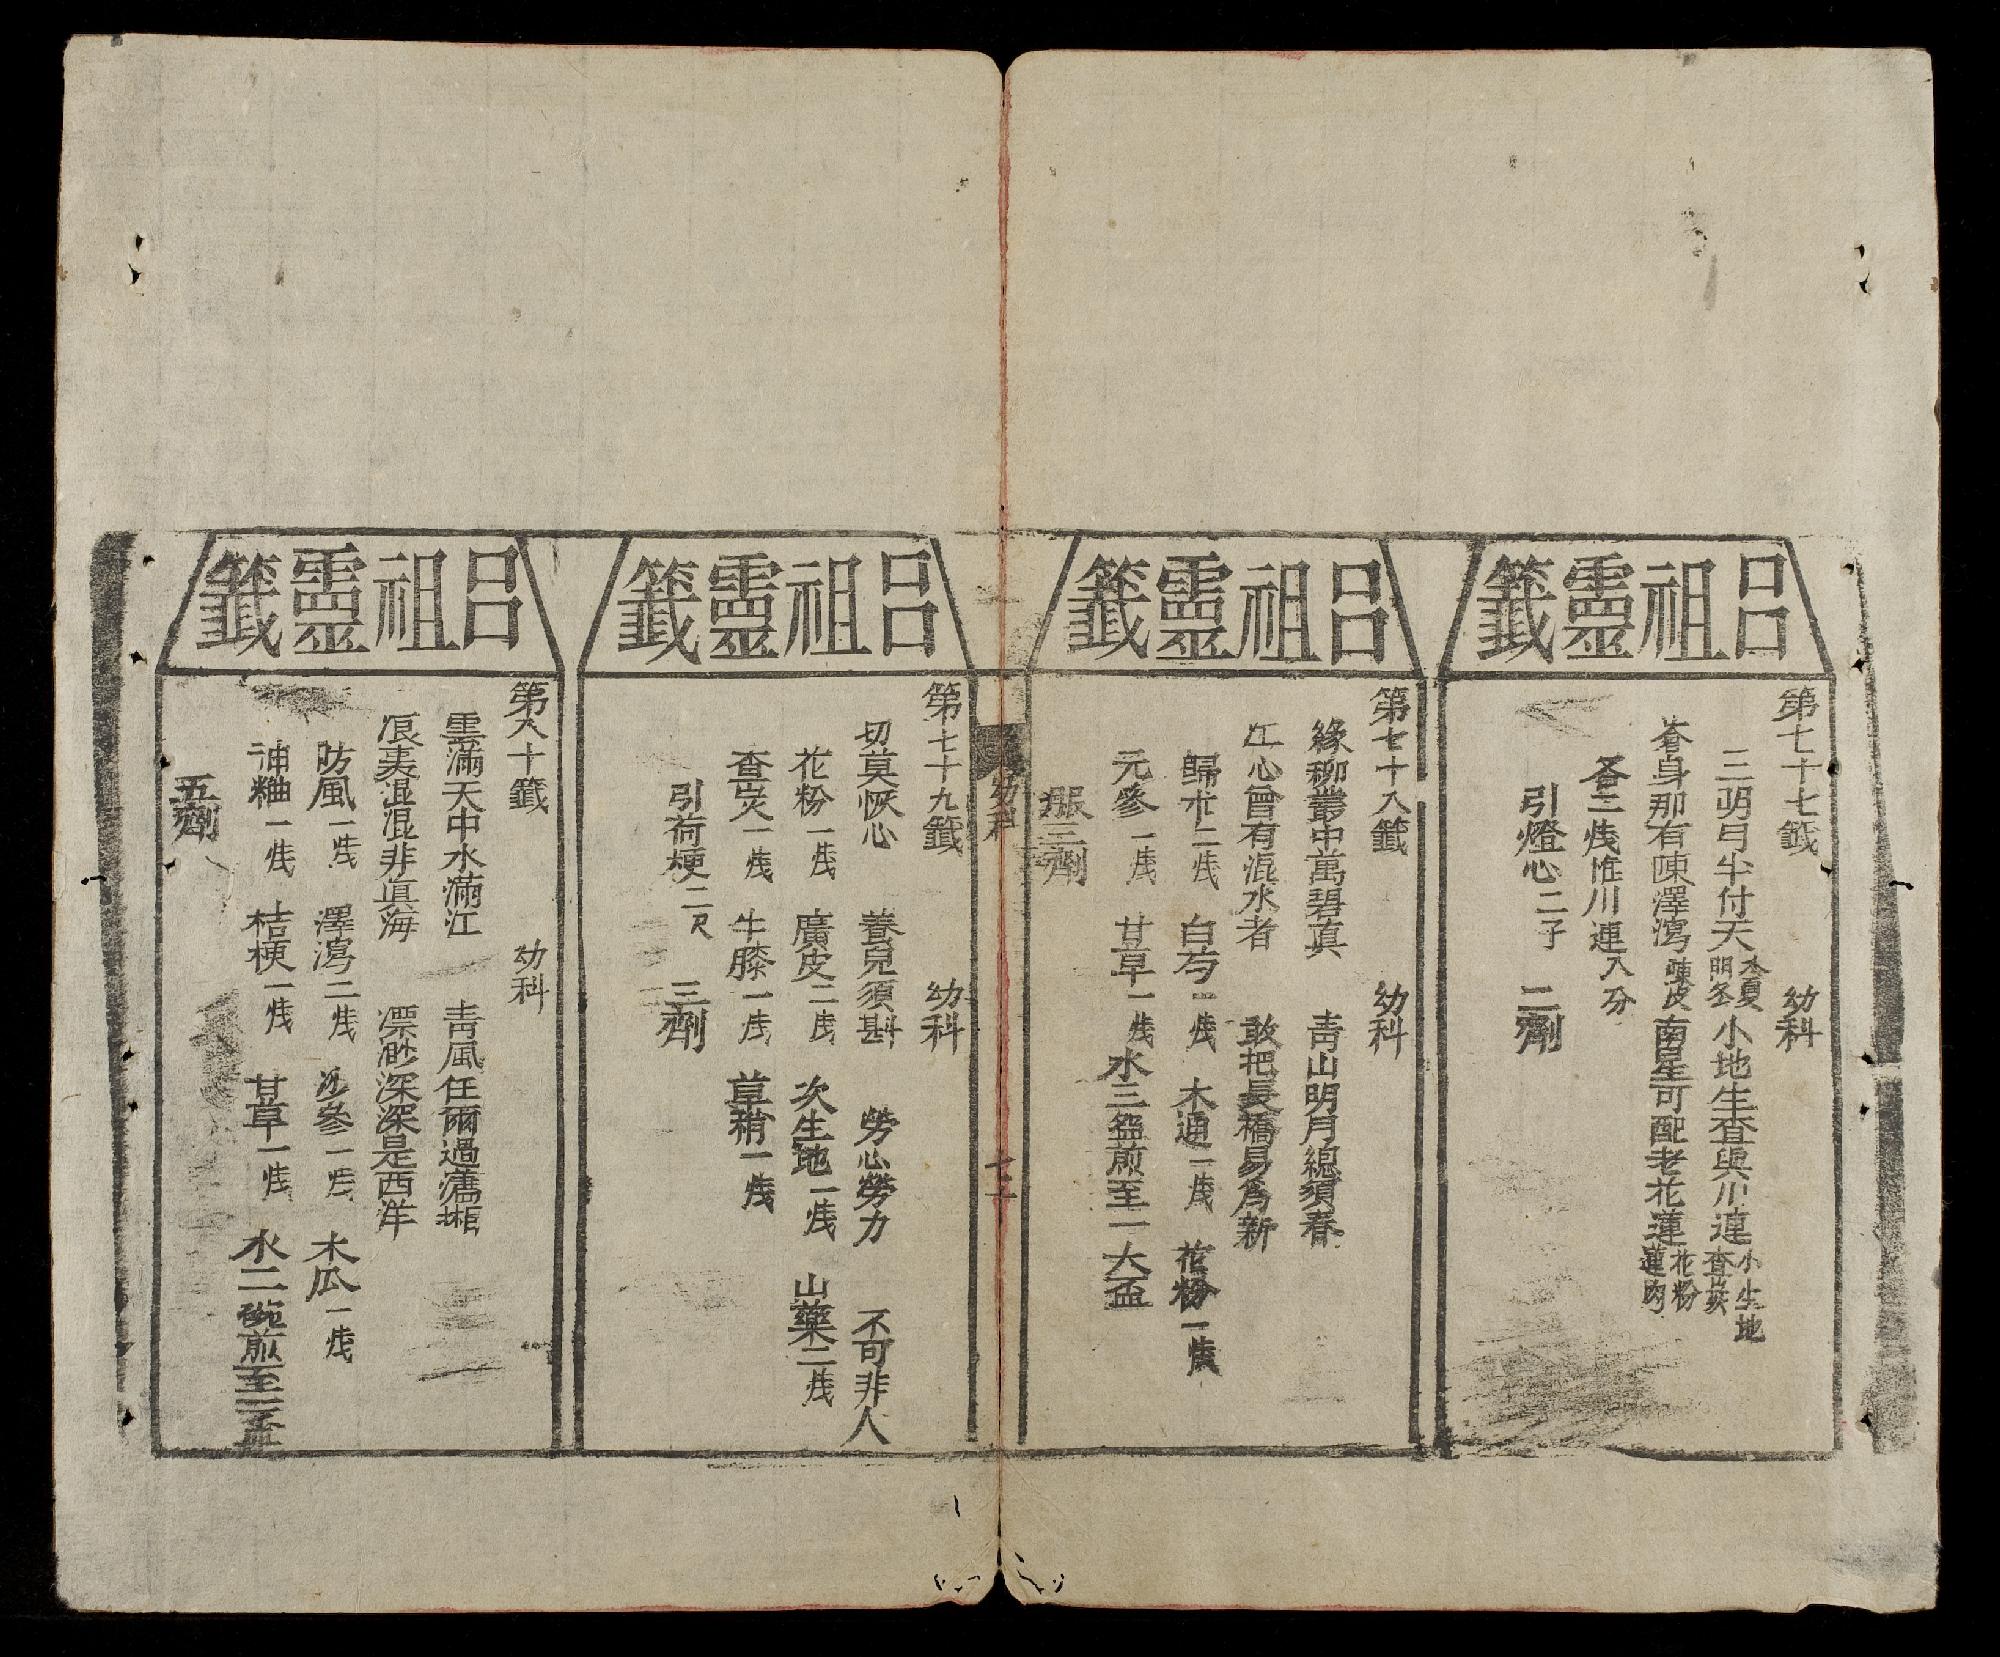 呂祖靈籤
第七十七籤 幼科
三明弓半付天本夏明冬小地生查與川連小生地查蓣
蒼身那有陳澤瀉陳皮南星可配老花蓮花粉蓮肉
各二戋惟川連八分
引燈心二子 二劑
呂祖靈籤
第七十八籤 幼科
緣柳叢中萬碧真 青山明月總須春
江心曾有混水者 敢把長橋易為新
歸朮二戋 白芍一戋 木通一戋 花粉一戋
元參一戋 甘草一戋 水三盌煎至一大盃
服三劑
幼科
呂祖靈籤
第七十九籤 幼科
切莫恢心 養兒須斟 勞心勞力 不可非人
花粉一戋 廣皮二戋 次生地一戋 山藥二戋
查炭一戋 牛膝一戋 草稍一戋
引荷梗二尺 三劑
呂祖靈籤
第八十籤 幼科
雲滿天中水滿江 青風任爾過瀟湘
浪裏混混非真海 漂渺深深是西洋
防風一戋 澤瀉二戋 沙參一戋 木瓜一戋
神粬一戋 桔梗一戋 甘草一戋 水二碗煎至一盃
五劑